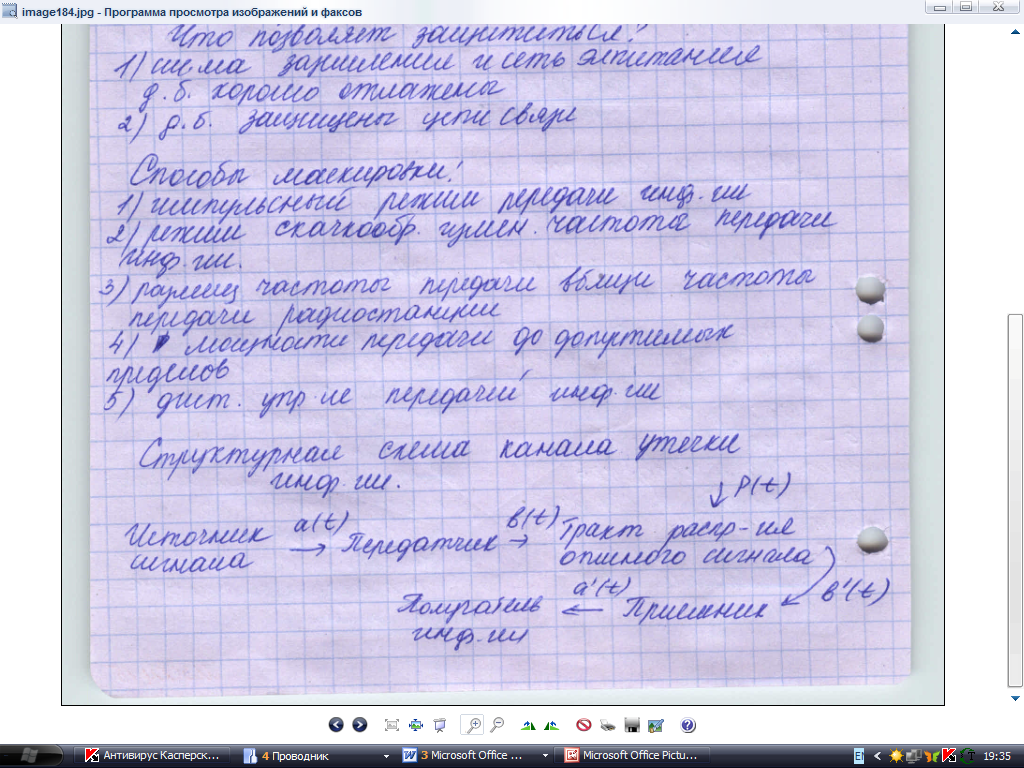 image184.jpg - Программа просмотра изображений и факсов
Что позволяет защититься?
1) схема заземления и сеть эл.питания
д.б. хорошо отлажены
2) д.б. защищены цепи связи
Способы маскировки:
1) импульсный режим передачи инф-ии
2) режим скачкообр. измен. частоты передачи
инф-ии.
3) размещ частоты передачи вблизи частоты
передачи радиостанции
4) мощности передачи до допустимых
пределов
5) дист. упр-ие передачей инф-ии
Структурная схема канала утечки
инф-ии.
↓ P(t)
Источник a(t) → Передатчик в(t) → Тракт распр-ия
сигнала сигнала в'(t)
Приемник a'(t) ← Получатель
инф-ии
Антивирус Касперск... 4 Проводник 3 Microsoft Office ... Microsoft Office Pictu... EN 19:35